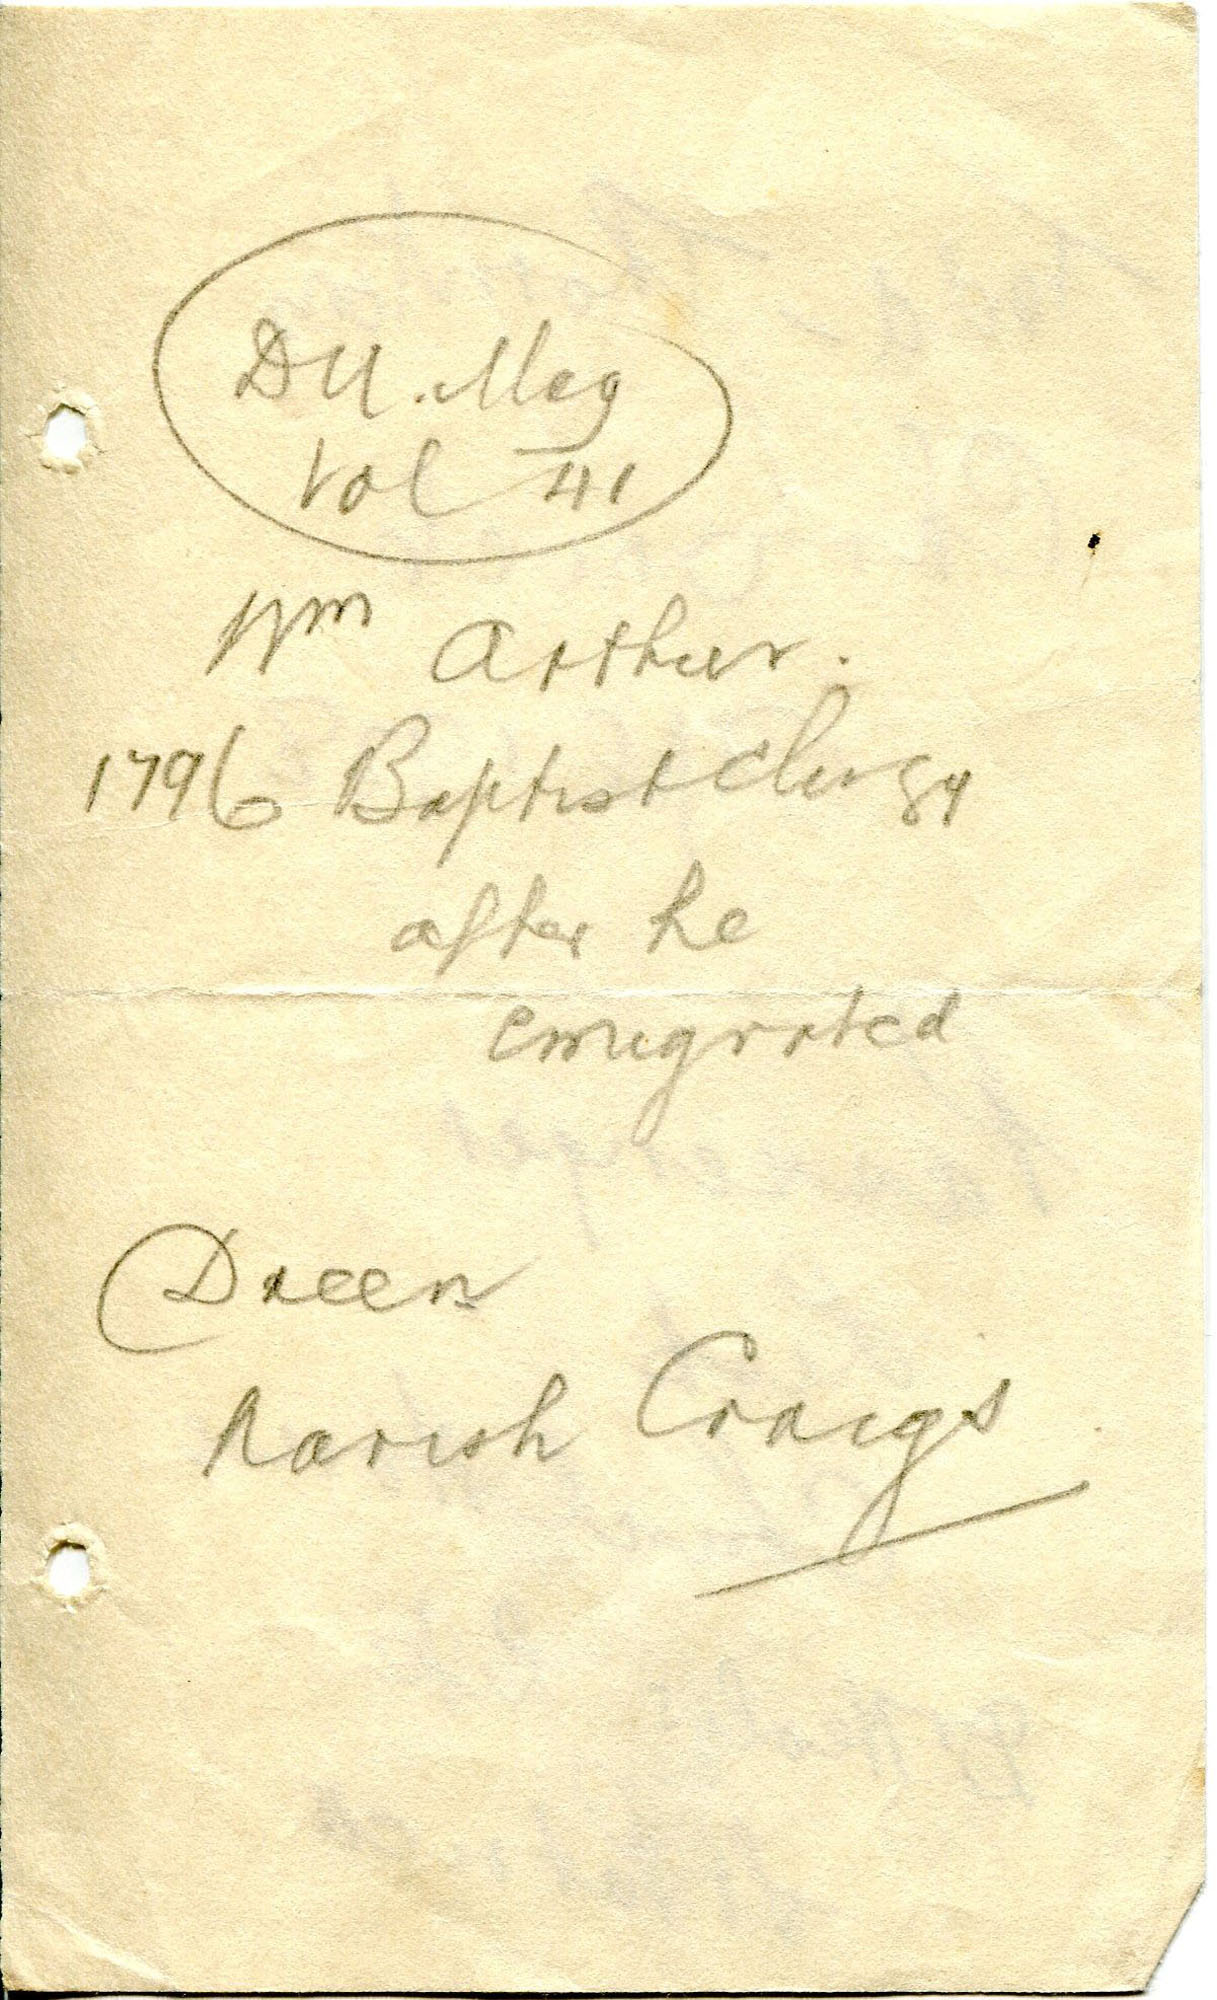 DU. Mag
Vol 41
Wm Arthur.
1796 Baptist Clergy
after he
emigrated
Dreen
Parish Craigs